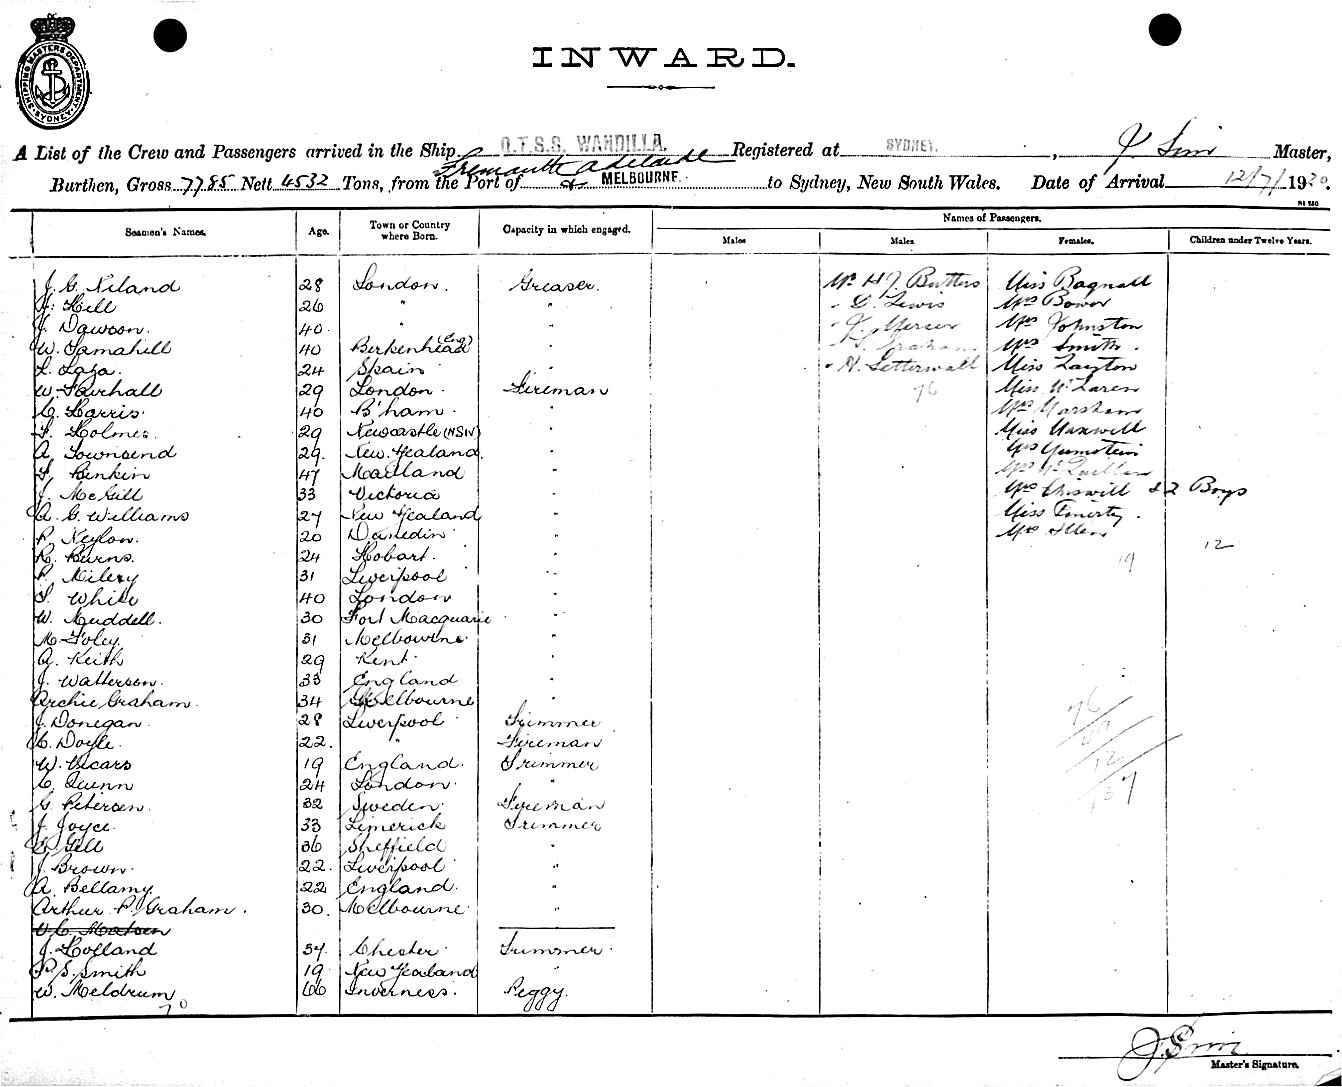 SHIPPING MASTERS DEPARTMENT SYDNEY
INWARD.
A List of the Crew and Passengers arrived in the Ship Q.T.S.S. WANDILLA. Registered at SYDNEY. , J. Sim Master,
Fremantle Adelaide
Burthen, Gross 7785 Nett 4532 Tons, from the Port of & MELBOURNE. to Sydney, New South Wales. Date of Arrival 12/7/1920.
Seamen's Names. Age. Town or Country where Born. Capacity in which engaged. Names of Passengers.
Males Males Females. Children under Twelve Years.
J. G. Niland 28 London. Greaser. Mr H J. Butters Miss Bagnall
H. Hill 26 " " " D. Lewis Mrs Bower
J. Dawson. 40 " " " J. Mercer Mrs Johnston
W. Tamahill 40 Birkenhead (Eng) " " Graham Mrs Smith.
L. Laza. 24 Spain " " H. Setterwall Miss Layton
W. Fairhall 29 London Fireman 76 Miss McLaren
C. Harris. 40 B'ham. " Mrs Marsham
F. Holmes. 29 Newcastle (NSW) " Miss Maxwell
A. Townsend 29. New Zealand. " Mrs
F. Binkin 47 Maitland " Mrs
J. McGill 33 Victoria " Mrs Chiswill & 2 Boys
A. G. Williams 27 New Zealand " Miss Finerty.
P. Neylon. 20 Dunedin " Mrs Allen
R. Burns. 24 Hobart. " 19 12
P. Milery 31 Liverpool "
T. White 40 London "
W. Muddell. 30 Port Macquarie "
M. Foley. 31 Melbourne "
A. Keith 29 Kent. "
J. Watterson. 33 England "
Archie Graham. 34 Melbourne " 76
J. Donegan. 28 Liverpool Trimmer 49
C. Doyle. 22. " Fireman 12
W. Vicars 19 England. Trimmer 137
C. Quinn 24 London. "
G. Petersen. 32 Sweden. Fireman
J. Joyce. 33 Limerick Trimmer
E. Gell 36 Sheffield "
J. Brown. 22. Liverpool "
A. Bellamy. 22 England. "
Arthur P. Graham. 30. Melbourne "
J. Holland 37. Chester Trimmer.
P. S. Smith 19. New Zealand "
W. Meldrum 66 Inverness. Peggy.
70
J. Sim
Master's Signature.